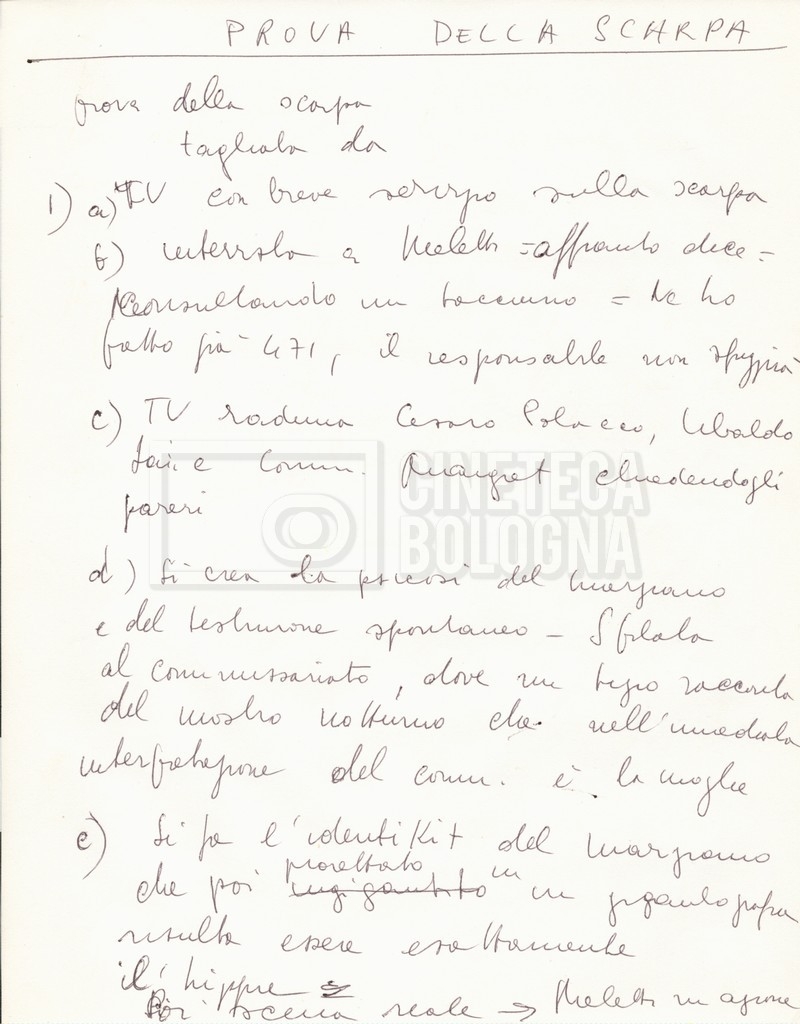 PROVA DELLA SCARPA
prova della scarpa
tagliata da
1) a) TV con breve servizio sulla scarpa
b) intervista a Meletti = affranto dice =
consultando un taccuino = Ne ho
fatto già 471, il responsabile non sfuggirà
c) TV raduna Cesare Polacco, Ubaldo
Lai e Comm. Maigret chiedendogli
pareri
CINETECA
BOLOGNA
d) Si crea la psicosi del marziano
e del testimone spontaneo - Sfilata
al commissariato, dove un tipo racconta
del mostro notturno che nell'immediata
interpretazione del comm. è la moglie
e) Si fa l'identikit del marziano
che poi proiettato in un gigantografia
risulta essere esattamente
il hippie
Poi scena reale → Meletti in azione